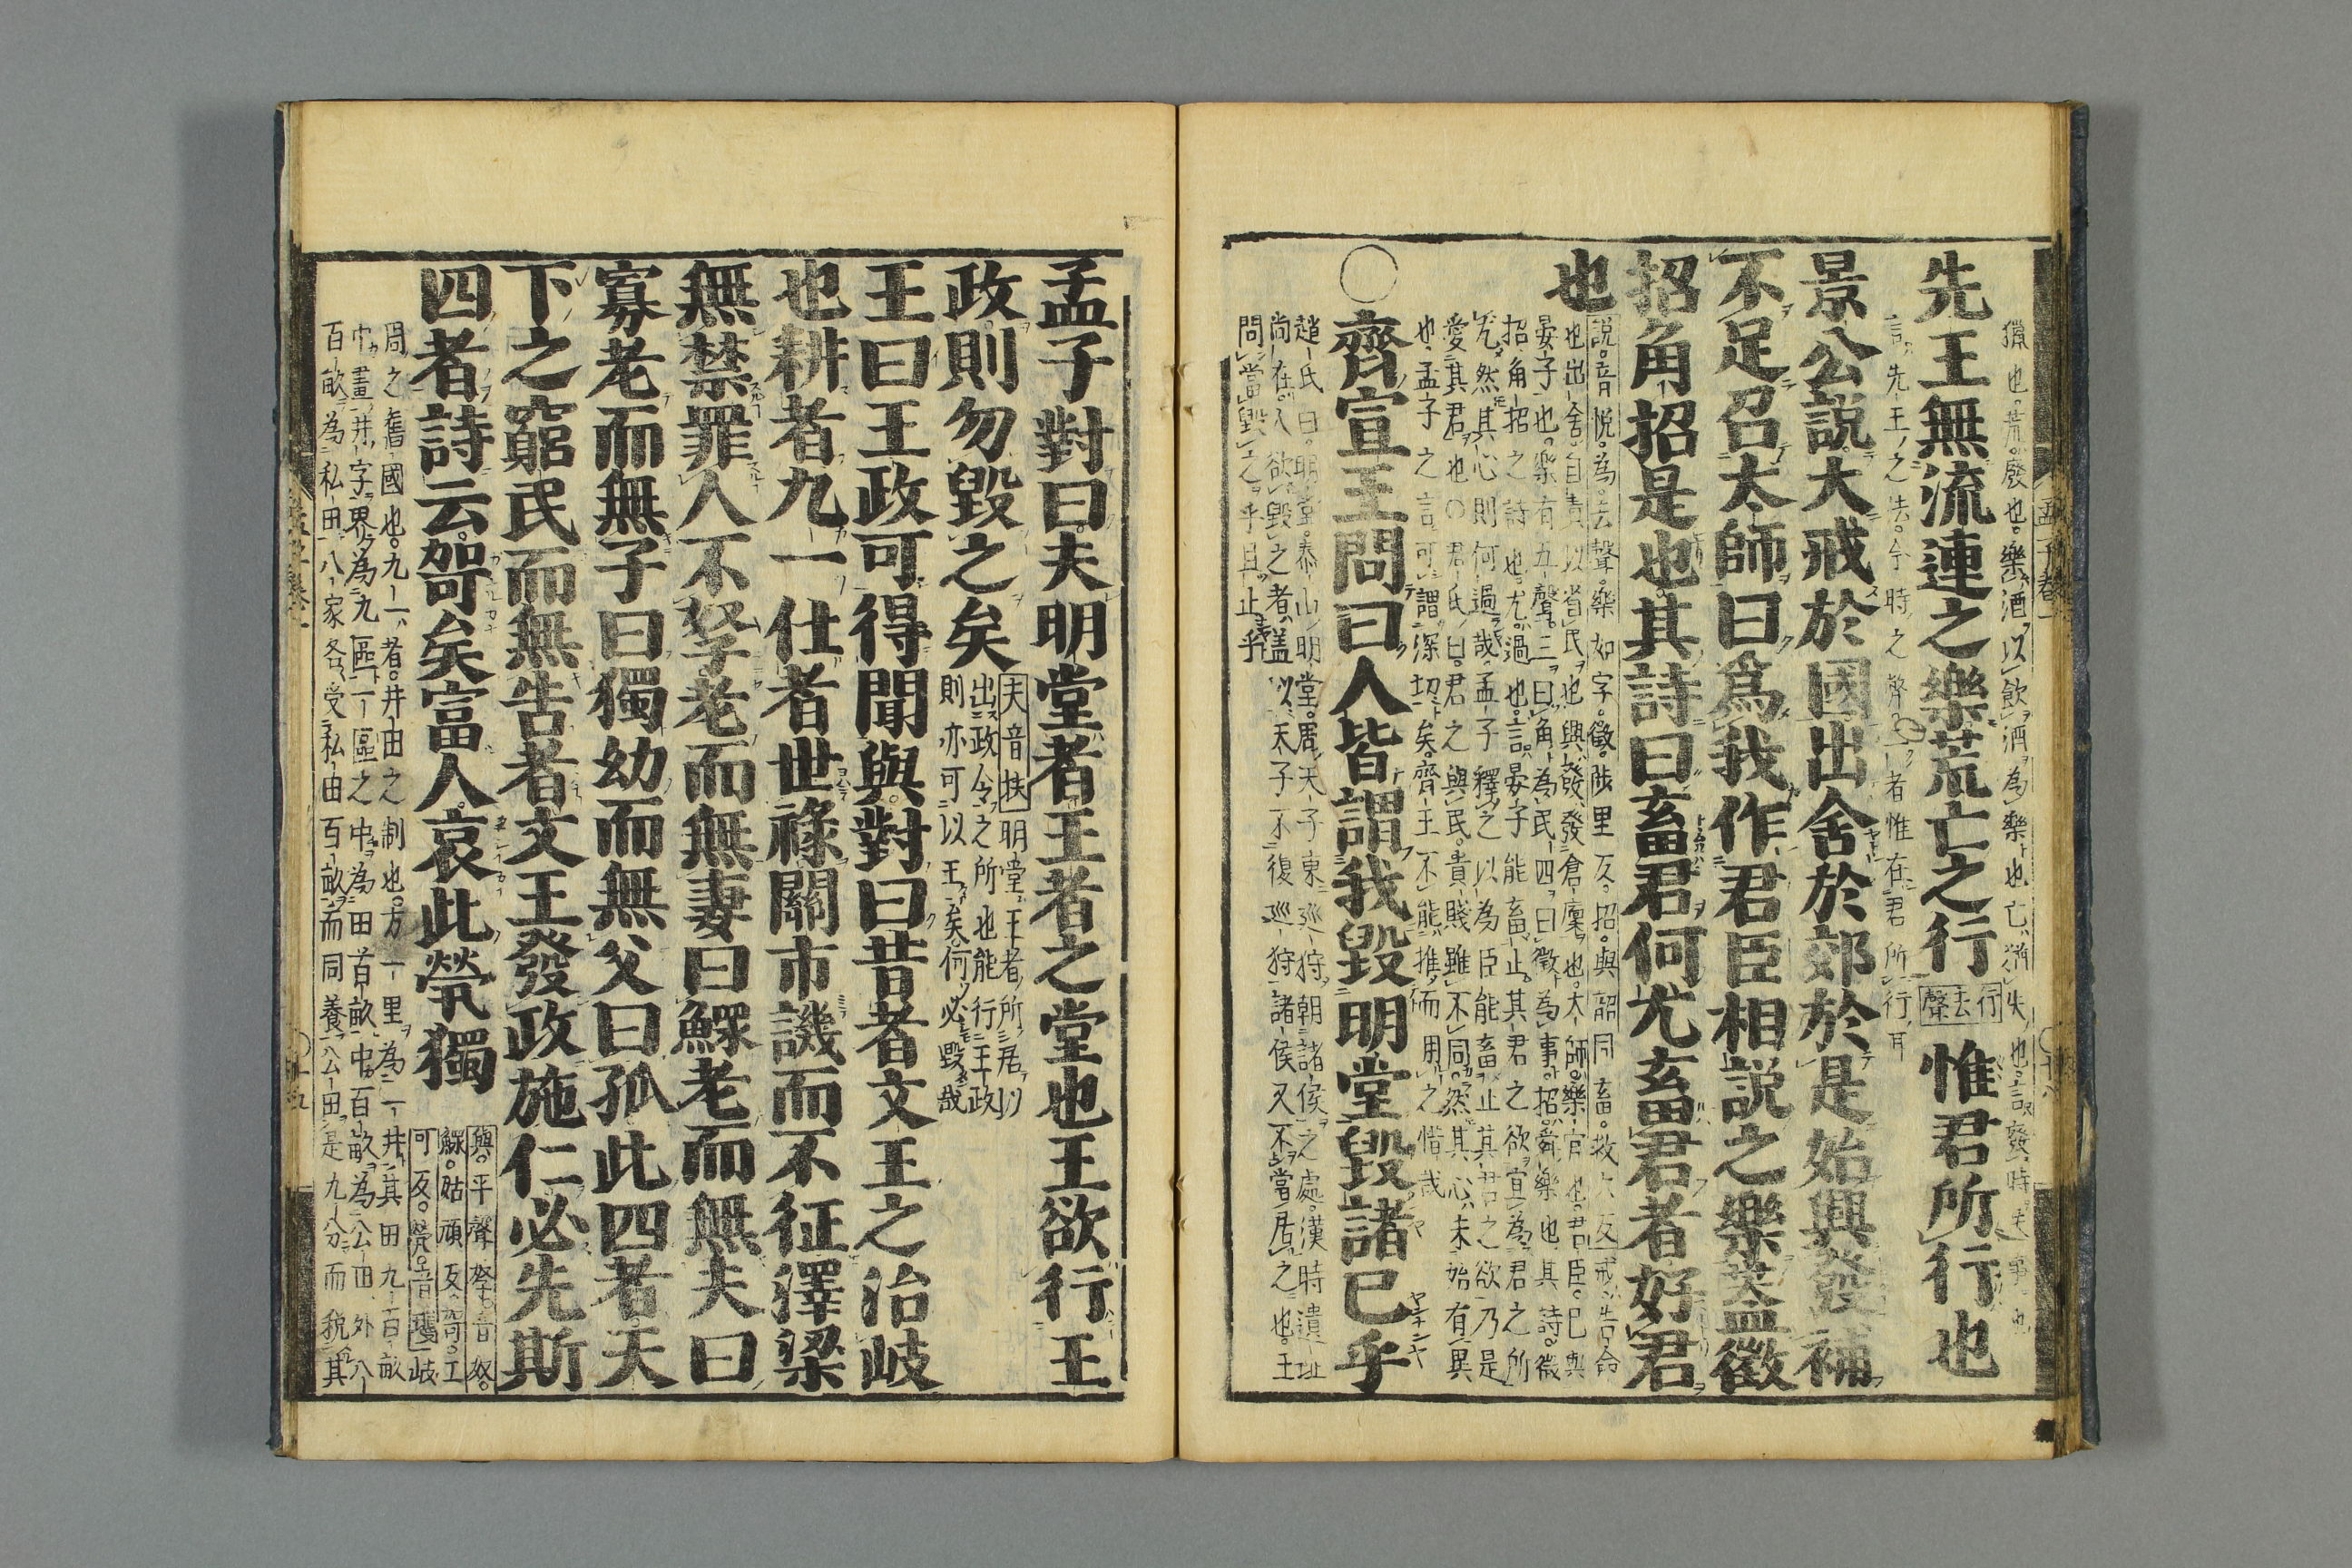 獵也。荒。廢也。樂酒。以飲酒為樂也亡。猶失也。言廢時。失事也
先王無流連之樂荒亡之行
行去聲
惟君所行也
言。先王之法。今時之弊。二者惟在君所行耳
景公說大戒於國出舍於郊於是始興發補
不足召太師曰爲我作君臣相說之樂蓋徵
招角招是也其詩曰畜君何尤畜君者好君
也
說。音悅。為。去聲。樂如字。徵。陟里反。招。與韶同畜。敕六反戒。告命
也出舍。自責以省民也興發。發倉廩也。大師。樂官也。君臣。己與
晏子也。樂有五聲。三曰角為民四曰徵為事。招。舜樂也其詩。徵
招角招之詩也尤。過也。言晏子能畜止其君之欲宜為君之所
尤然其心則何過哉孟子釋之以為臣能畜止其君之欲乃是
愛其君也○君氏曰。君之與民。貴賤雖不同。然其心未始有異
也孟子之言可謂深切矣。齊王不能推而用之惜哉
○齊宣王問曰人皆謂我毀明堂毀諸已乎
趙氏曰。明堂。泰山明堂。周天子東巡狩。朝諸侯之處。漢時遺址
尚在。人欲毀之者。蓋以天子不復巡狩諸侯又不當居之也。王
問當毀之乎且止乎
孟子對曰夫明堂者王者之堂也王欲行王
政則勿毀之矣
夫音扶明堂。王者所居。以
出政令之所也能行王政
則亦可以王矣何必毀哉
王曰王政可得聞與對曰昔者文王之治岐
也耕者九一仕者世祿關市譏而不征澤梁
無禁罪人不孥老而無妻曰鰥老而無夫曰
寡老而無子曰獨幼而無父曰孤此四者天
下之窮民而無告者文王發政施仁必先斯
四者詩云哿矣富人哀此煢獨
與。平聲孥。音奴。
鰥。姑頑反哿。工
可反。煢。音瓊岐
周之舊國也。九一。者。井田之制也。方一里為一井其田九百畝
中畫井字界為九區一區之中為田百畝中百畝為公田外八
百畝為私田八家各受私田百畝而同養公田是九分而稅其